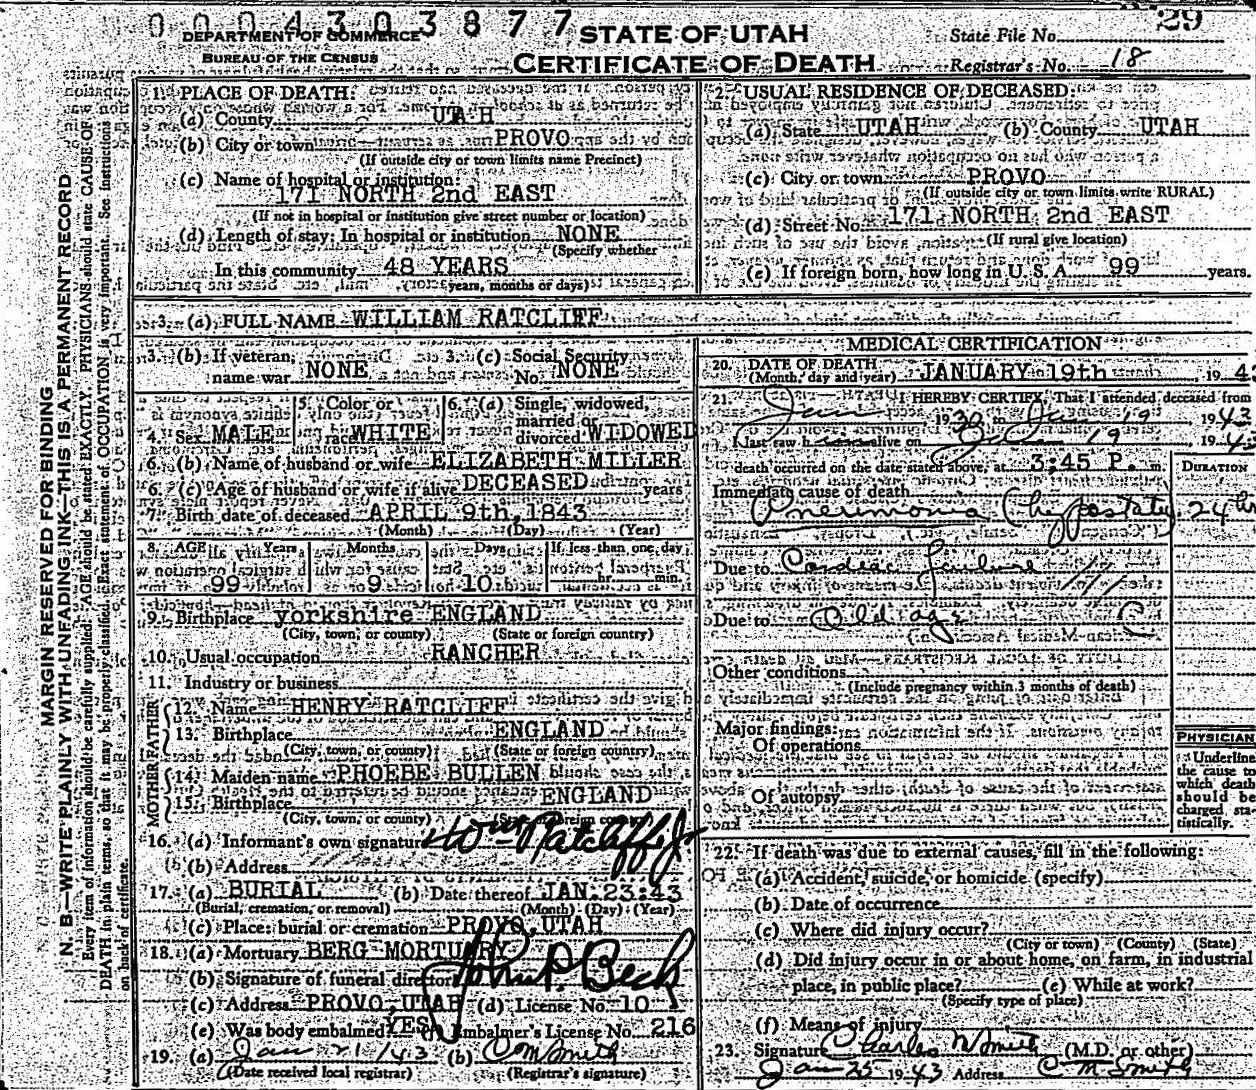 0004303877
29
DEPARTMENT OF COMMERCE
BUREAU OF THE CENSUS
STATE OF UTAH
CERTIFICATE OF DEATH
State File No.
Registrar's No. 18
MARGIN RESERVED FOR BINDING
N. B—WRITE PLAINLY WITH UNFADING INK—THIS IS A PERMANENT RECORD
Every item of information should be carefully supplied. AGE should be stated EXACTLY. PHYSICIANS should state CAUSE OF
DEATH in plain terms, so that it may be properly classified. Exact statement of OCCUPATION is very important. See instructions
on back of certificate.
1. PLACE OF DEATH:
(a) County UTAH
(b) City or town PROVO
(If outside city or town limits name Precinct)
(c) Name of hospital or institution:
171 NORTH 2nd EAST
(If not in hospital or institution give street number or location)
(d) Length of stay: In hospital or institution NONE
(Specify whether
In this community 48 YEARS
years, months or days)
2. USUAL RESIDENCE OF DECEASED:
(a) State UTAH (b) County UTAH
(c) City or town PROVO
(If outside city or town limits write RURAL)
(d) Street No. 171 NORTH 2nd EAST
(If rural give location)
(e) If foreign born, how long in U. S. A. 99 years.
3. (a) FULL NAME WILLIAM RATCLIFF
3. (b) If veteran, name war NONE
3. (c) Social Security No. NONE
4. Sex MALE
5. Color or race WHITE
6. (a) Single, widowed, married or divorced WIDOWED
6. (b) Name of husband or wife ELIZABETH MILLER
6. (c) Age of husband or wife if alive DECEASED years
7. Birth date of deceased APRIL 9th, 1843
(Month) (Day) (Year)
8. AGE Years Months Days If less than one day
99 9 10 hr. min.
9. Birthplace yorkshire ENGLAND
(City, town, or county) (State or foreign country)
10. Usual occupation RANCHER
11. Industry or business
FATHER
12. Name HENRY RATCLIFF
13. Birthplace ENGLAND
(City, town, or county) (State or foreign country)
MOTHER
14. Maiden name PHOEBE BULLEN
15. Birthplace ENGLAND
(City, town, or county) (State or foreign country)
16. (a) Informant's own signature Wm Ratcliffe Jr
(b) Address
17. (a) BURIAL (b) Date thereof JAN.23:43
(Burial, cremation, or removal) (Month) (Day) (Year)
(c) Place: burial or cremation PROVO, UTAH
18. (a) Mortuary BERG MORTUARY
(b) Signature of funeral director John P. Beck
(c) Address PROVO, UTAH (d) License No. 10
(e) Was body embalmed? YES (f) Embalmer's License No. 216
19. (a) Jan 21/43 (b) C M Smith
(Date received local registrar) (Registrar's signature)
MEDICAL CERTIFICATION
20. DATE OF DEATH
(Month, day and year) JANUARY 19th, 194
21. I HEREBY CERTIFY, That I attended deceased from
Jan 1930 to Jan 19 1943
I last saw him alive on Jan 19, 1943
death occurred on the date stated above, at 3:45 P. m.
DURATION
Immediate cause of death
Pneumonia (hypostatic) 24 hr
Due to Cardiac failure
Due to Old age
Other conditions
(Include pregnancy within 3 months of death)
Major findings:
Of operations
Of autopsy
PHYSICIAN
Underline
the cause to
which death
should be
charged sta-
tistically.
22. If death was due to external causes, fill in the following:
(a) Accident, suicide, or homicide (specify)
(b) Date of occurrence
(c) Where did injury occur?
(City or town) (County) (State)
(d) Did injury occur in or about home, on farm, in industrial
place, in public place? (e) While at work?
(Specify type of place)
(f) Means of injury
23. Signature Charles M Smith (M.D. or other)
Jan 25 1943 Address C M Smith